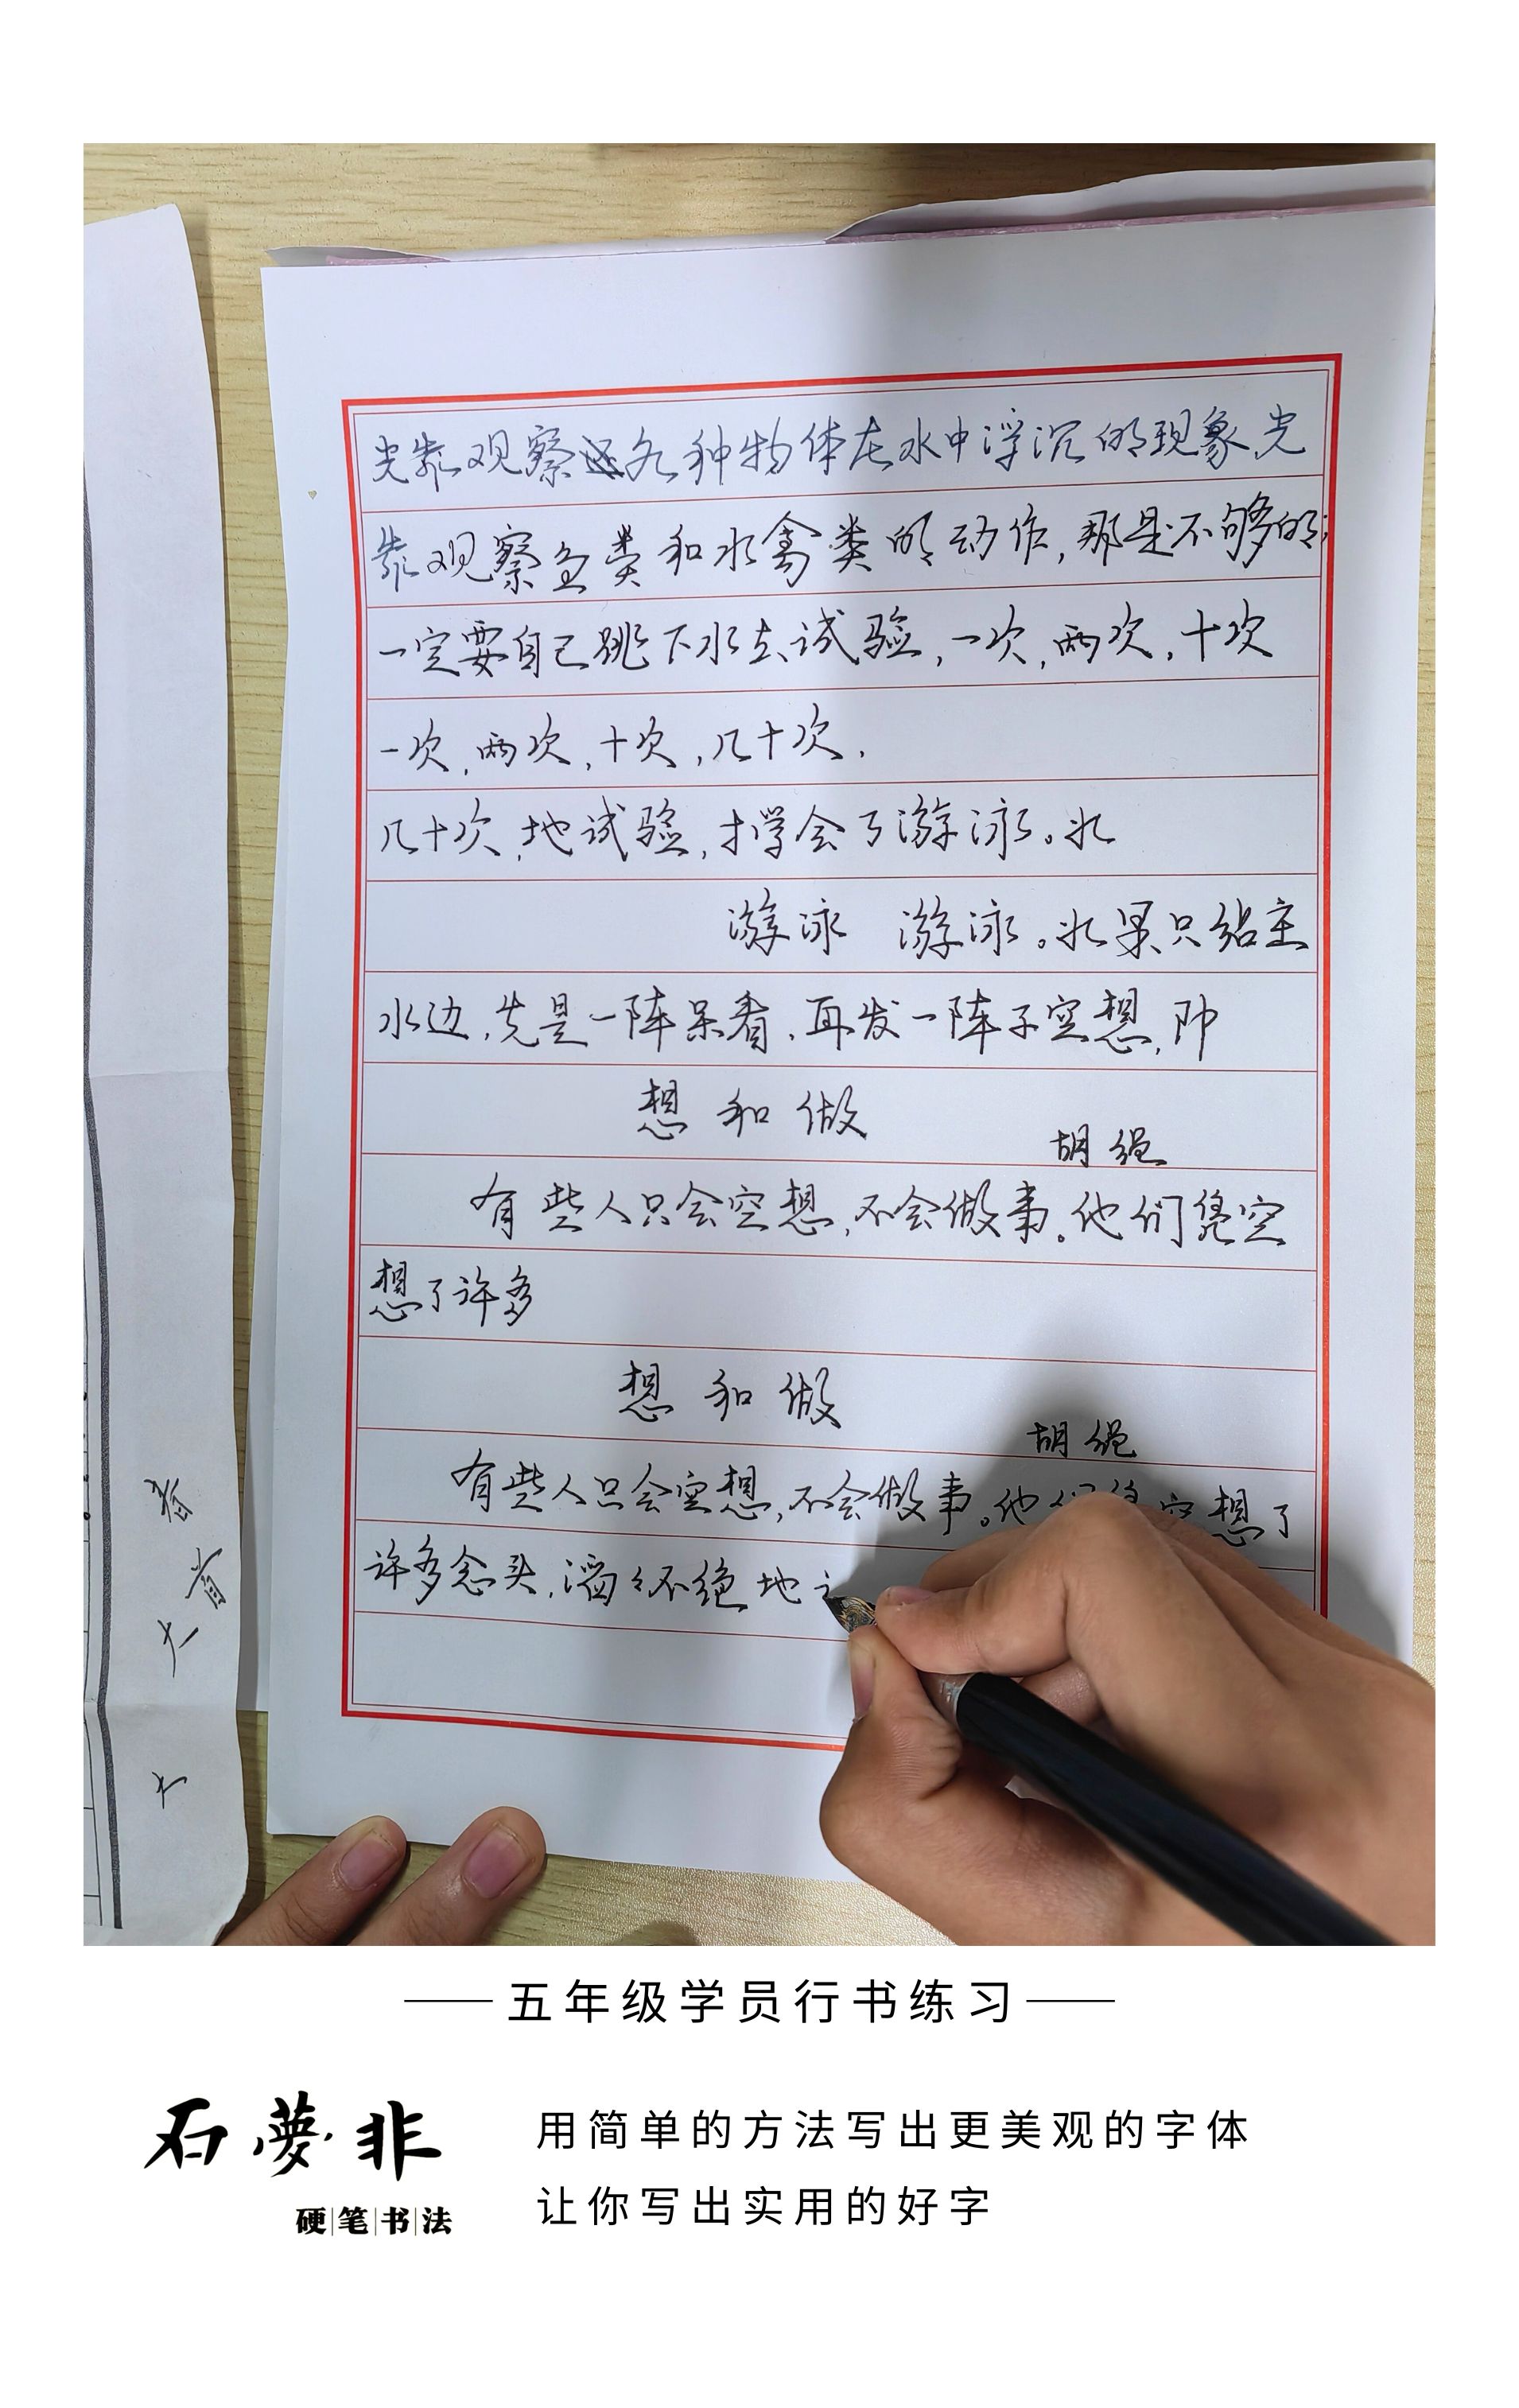 光靠观察各种物体在水中浮沉的现象,光
靠观察鱼类和水禽类的动作,那是不够的;
一定要自己跳下水去试验,一次,两次,十次
一次,两次,十次,几十次,
几十次,地试验,才学会了游泳。如
游泳 游泳。如果只站在
水边,先是一阵呆看,再发一阵子空想,即
想和做
胡绳
有些人只会空想,不会做事。他们凭空
想了许多
想和做
胡绳
有些人只会空想,不会做事。他们凭空想了
许多念头,滔々不绝地
春
大首
大
五年级学员行书练习
石夢非
硬笔书法
用简单的方法写出更美观的字体
让你写出实用的好字